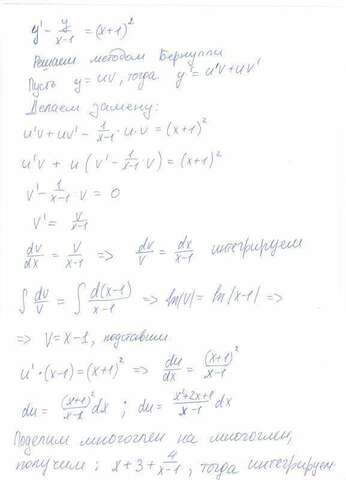 y' - y/(x-1) = (x+1)²
Решаем методом Бернулли
Пусть y = uv, тогда y' = u'v + uv'
Делаем замену:
u'v + uv' - 1/(x-1) · u · v = (x+1)²
u'v + u(v' - 1/(x-1) · v) = (x+1)²
v' - 1/(x-1) · v = 0
v' = v/(x-1)
dv/dx = v/(x-1) => dv/v = dx/(x-1) интегрируем
∫ dv/v = ∫ d(x-1)/(x-1) => ln|v| = ln|x-1| =>
=> v = x-1, подставим
u' · (x-1) = (x+1)² => du/dx = (x+1)²/(x-1)
du = (x+1)²/(x-1) dx ; du = (x²+2x+1)/(x-1) dx
Поделим многочлен на многочлен,
получим: x+3+4/(x-1), тогда интегрируем